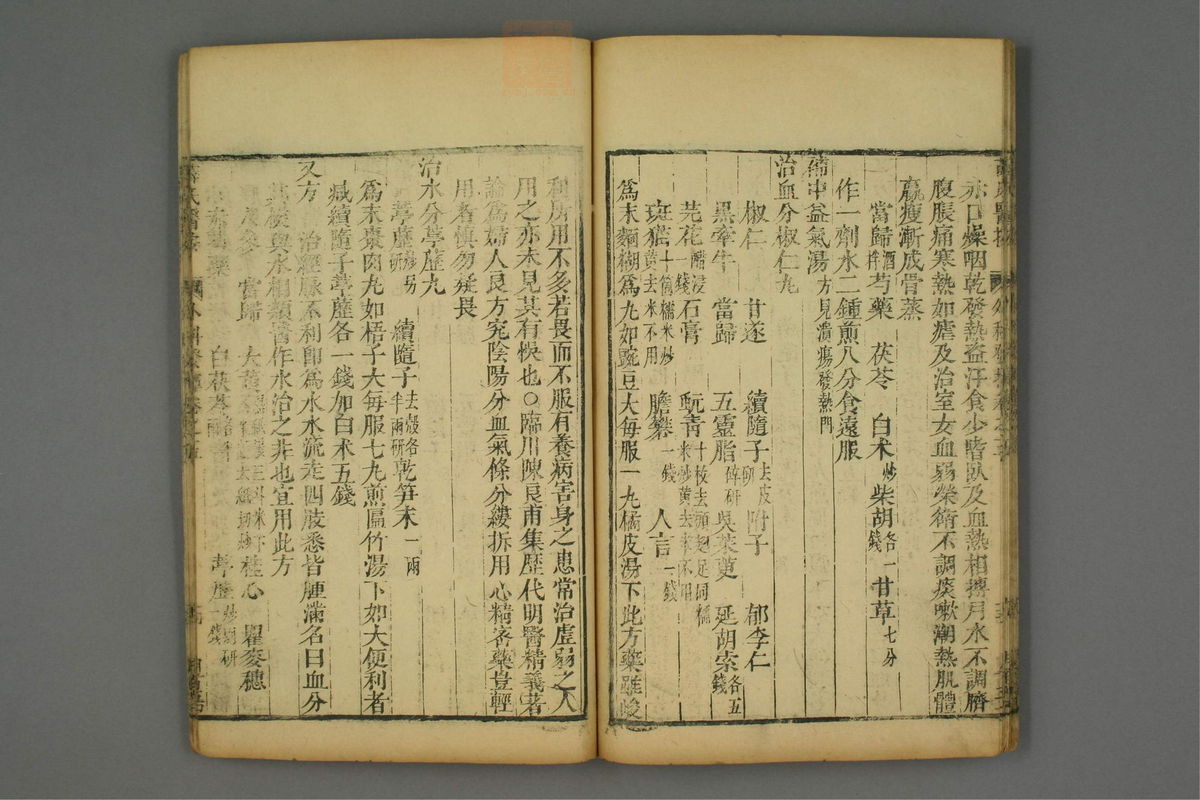 赤口燥咽乾發熱盜汗食少嗜臥及血熱相搏月水不調臍
腹脹痛寒熱如瘧及治室女血弱榮衛不調痰嗽潮熱肌體
羸瘦漸成骨蒸
當歸酒拌 芍藥 茯苓 白朮炒 柴胡各一錢 甘草七分
作一劑水二鍾煎八分食遠服
補中益氣湯方見潰瘍發熱門
治血分椒仁丸
椒仁 甘遂 續隨子去皮研 附子 郁李仁
黑牽牛 當歸 五靈脂碎研 吳茱萸 延胡索各五錢
芫花醋浸一錢 石膏 蚖青十枚去頭翅足同糯米炒黃去米不用
斑猫十個糯米炒黃去米不用 膽礬一錢 人言一錢
爲末麵糊爲丸如豌豆大每服一丸橘皮湯下此方藥雖峻
利所用不多若畏而不服有養病害身之患常治虛弱之人
用之亦未見其有悞也○臨川陳良甫集歷代明醫精義著
論爲婦人良方究陰陽分血氣條分縷拆用心精密藥豈輕
用者慎勿疑長
治水分葶藶丸
葶藶炒另研 續隨子去殼各半兩研 乾笋末一兩
爲末棗肉丸如梧子大每服七丸煎扁竹湯下如大便利者
減續隨子葶藶各一錢加白朮五錢
又方 治經脉不利卽爲水水流走四肢悉皆腫滿名曰血分
其候與水相類醫作水治之非也宜用此方
當歸 大 桂心 瞿麥穗
藥 白茯苓 葶藶炒研一錢